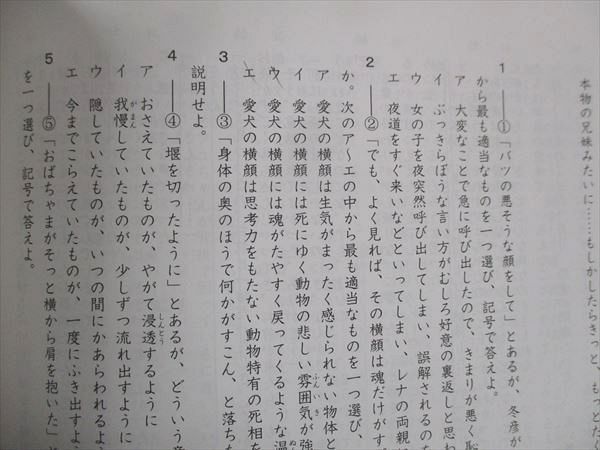 本物の兄妹みたいに……もしかしたらきっと、もっとたく
1 ――①「バツの悪そうな顔をして」とあるが、冬彦が
から最も適当なものを一つ選び、記号で答えよ。
ア 大変なことで急に呼び出したので、きまりが悪く恥
イ ぶっきらぼうな言い方がむしろ好意の裏返しと思わ
ウ 女の子を夜突然呼び出してしまい、誤解されるのを
エ 夜道をすぐ来いなどといってしまい、レナの両親
2 ――②「でも、よく見れば、その横顔は魂だけがす
か。次のア～エの中から最も適当なものを一つ選び、
ア 愛犬の横顔は生気がまったく感じられない物体と
イ 愛犬の横顔には死にゆく動物の悲しい雰囲気が強
ウ 愛犬の横顔には魂がたやすく戻ってくるような温
エ 愛犬の横顔は思考力をもたない動物特有の死相を
3 ――③「身体の奥のほうで何かがすこん、と落ちた
説明せよ。
4 ――④「堰を切ったように」とあるが、どういう意
ア おさえていたものが、やがて浸透するように
イ 我慢していたものが、少しずつ流れ出すように
ウ 隠していたものが、いつの間にかあらわれるよ
エ 今までこらえていたものが、一度にふき出すよう
5 ――⑤「おばちゃまがそっと横から肩を抱いた」と
を一つ選び、記号で答えよ。